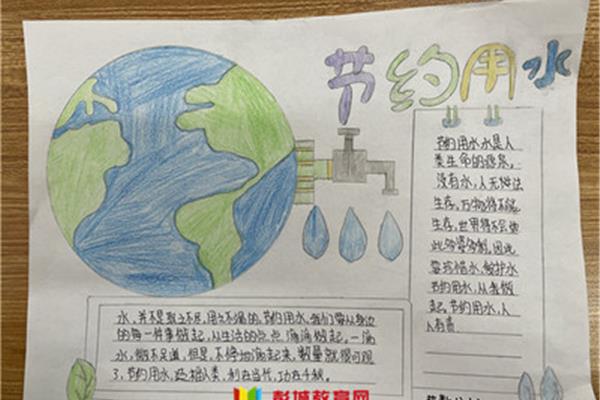 节约用水
节约用水水是人
类生命的源泉，
没有水，人无法
生存，万物得不
生存，世界得不会
此多姿多彩，因此
要珍惜水，爱护水
节约用水，从我做
起，节约用水，人
人有责
水，并不是取之不尽，用之不竭的，节约用水，我们要从身边
的每一件事做起，从生活的点点滴滴做起。一滴
水，微不足道，但是，不停地滴起来，数量就很可观
了，节约用水，造福人类，利在当代，功在千秋。
彭城教育网